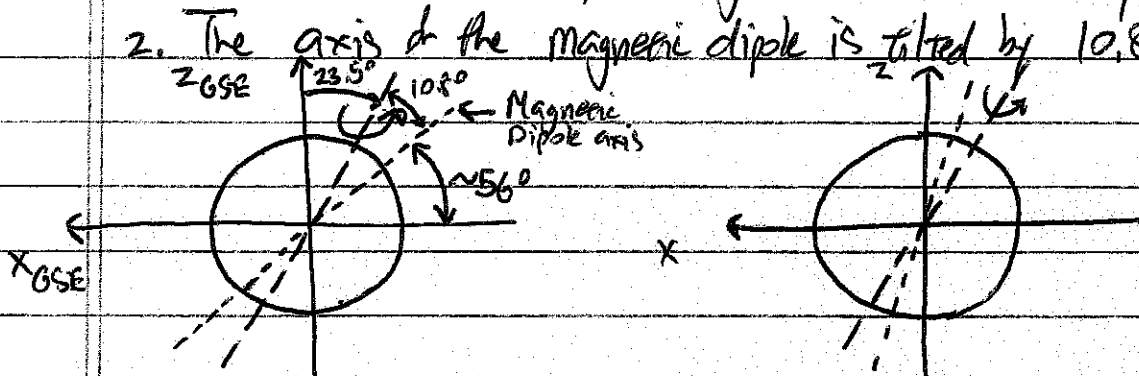 2. The axis of the magnetic dipole is tilted by 10.8
Z GSE
23.5°
10.8°
Magnetic
Dipole axis
~56°
X GSE
z
X